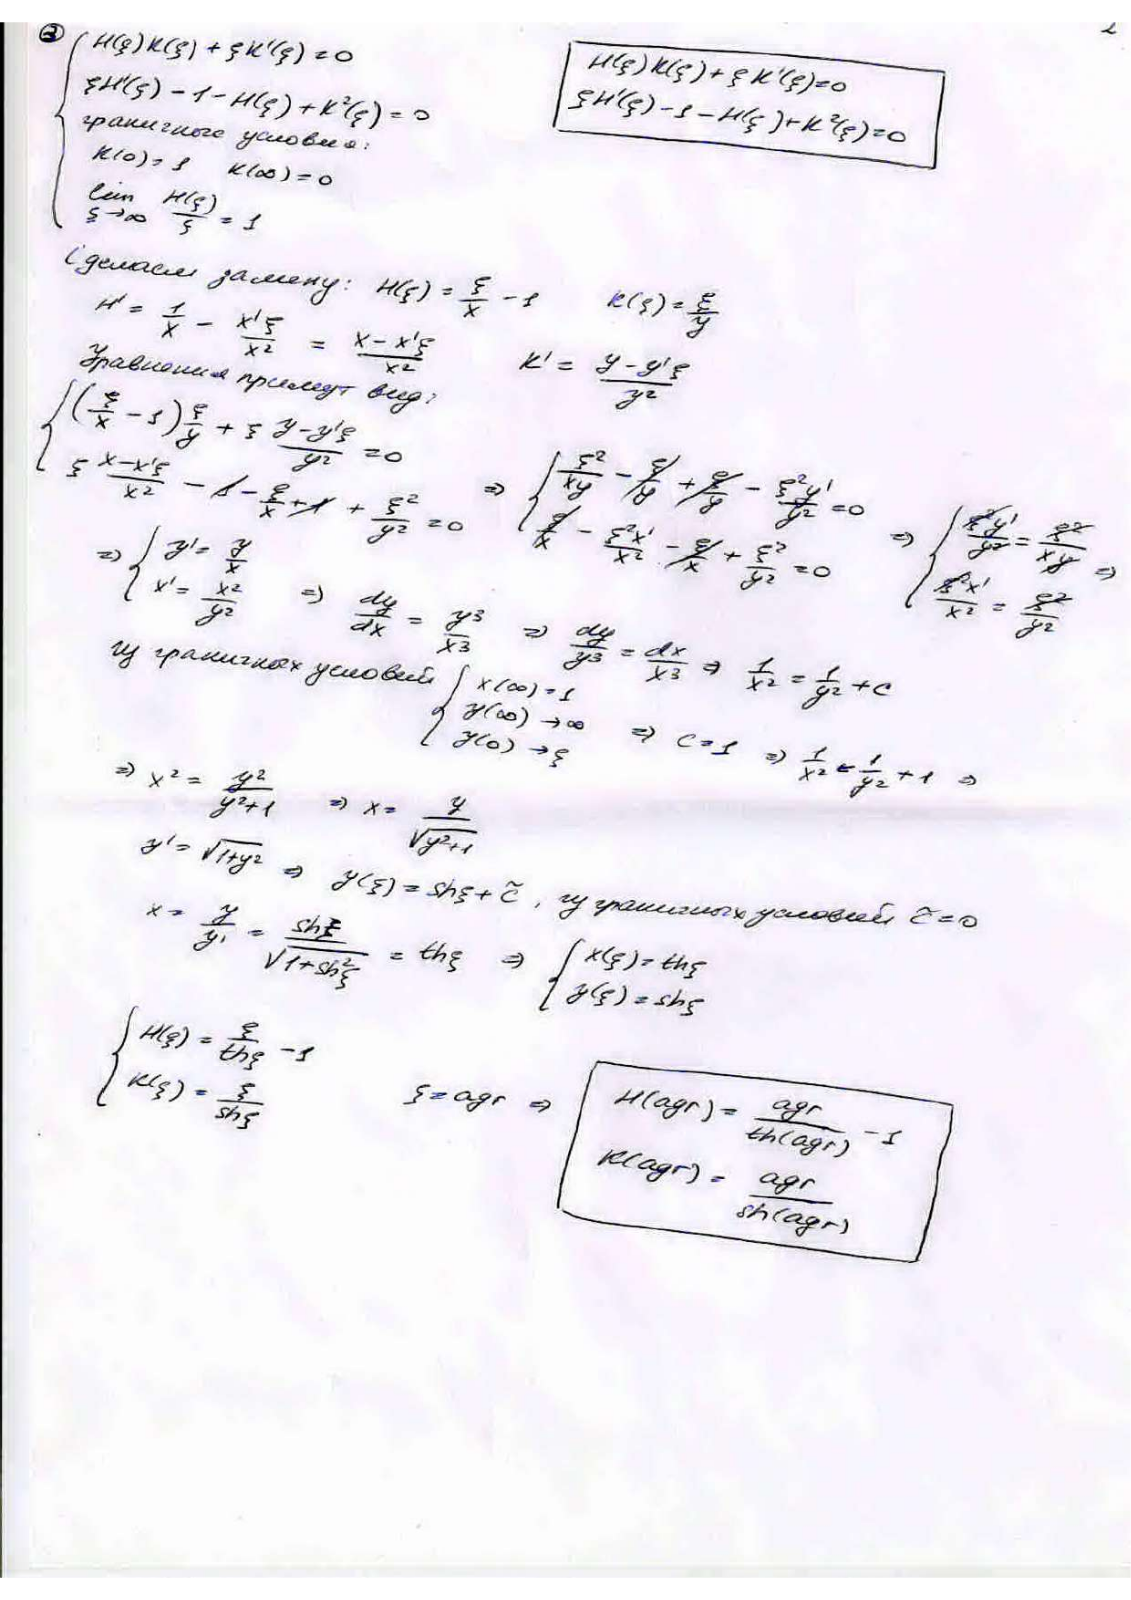 2
② H(ξ)K(ξ) + ξK'(ξ) = 0
ξH'(ξ) - 1 - H(ξ) + K²(ξ) = 0
граничные условия:
K(0) = 1 K(∞) = 0
lim ξ→∞ H(ξ)/ξ = 1
H(ξ)K(ξ) + ξK'(ξ) = 0
ξH'(ξ) - 1 - H(ξ) + K²(ξ) = 0
Сделаем замену: H(ξ) = ξ/x - 1 K(ξ) = ξ/y
H' = 1/x - x'ξ/x² = (x - x'ξ)/x² K' = (y - y'ξ)/y²
Уравнения примут вид:
{ (ξ/x - 1) ξ/y + ξ (y - y'ξ)/y² = 0
ξ (x - x'ξ)/x² - 1 - ξ/x + 1 + ξ²/y² = 0
⇒ { ξ²/xy - ξ/y + ξ/y - ξ²y'/y² = 0
ξ/x - ξ²x'/x² - ξ/x + ξ²/y² = 0
⇒ { ξ²y'/y² = ξ²/xy
ξ²x'/x² = ξ²/y² ⇒
⇒ { y' = y/x
x' = x²/y²
⇒ dy/dx = y³/x³ ⇒ dy/y³ = dx/x³ ⇒ 1/x² = 1/y² + C
из граничных условий { x(∞) = 1
y(∞) → ∞
y(0) → ξ
⇒ C = 1 ⇒ 1/x² = 1/y² + 1 ⇒
⇒ x² = y²/(y²+1) ⇒ x = y/√(y²+1)
y' = √(1+y²) ⇒ y(ξ) = shξ + c̃, из граничных условий c̃ = 0
x = y/y' = shξ/√(1+sh²ξ) = thξ ⇒ { x(ξ) = thξ
y(ξ) = shξ
{ H(ξ) = ξ/thξ - 1
K(ξ) = ξ/shξ
ξ = agr ⇒
H(agr) = agr/th(agr) - 1
K(agr) = agr/sh(agr)